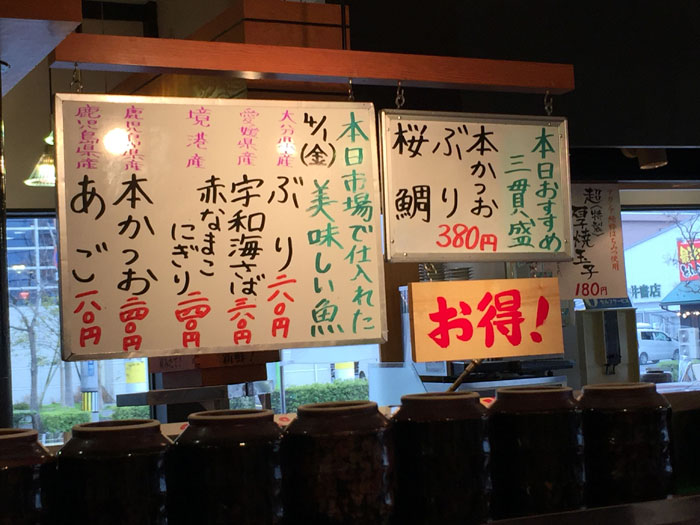 本日市場で仕入れた
美味しい魚
4/1(金)
大分県産
ぶり二八〇円
愛媛県産
宇和海さば三八〇円
境港産
赤なまこ
にぎり二四〇円
鹿児島県産
本かつお二四〇円
鹿児島県産
あご一八〇円
本日おすすめ
三貫盛
本かつお
ぶり
桜鯛
380円
お得!
厚焼玉子
180円
書店